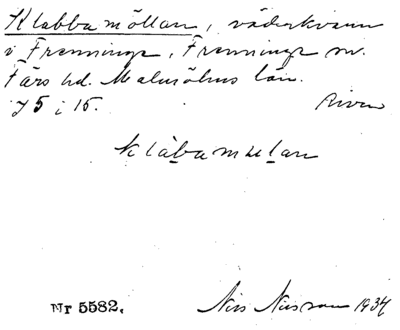 Klabbamöllan, väderkvarn
i Frenninge, Frenninge sn.
Färs hd. Malmöhus län.
J 5 i 15. Riven
klabamulan
Nr 5582. Nils Nilsson 1934